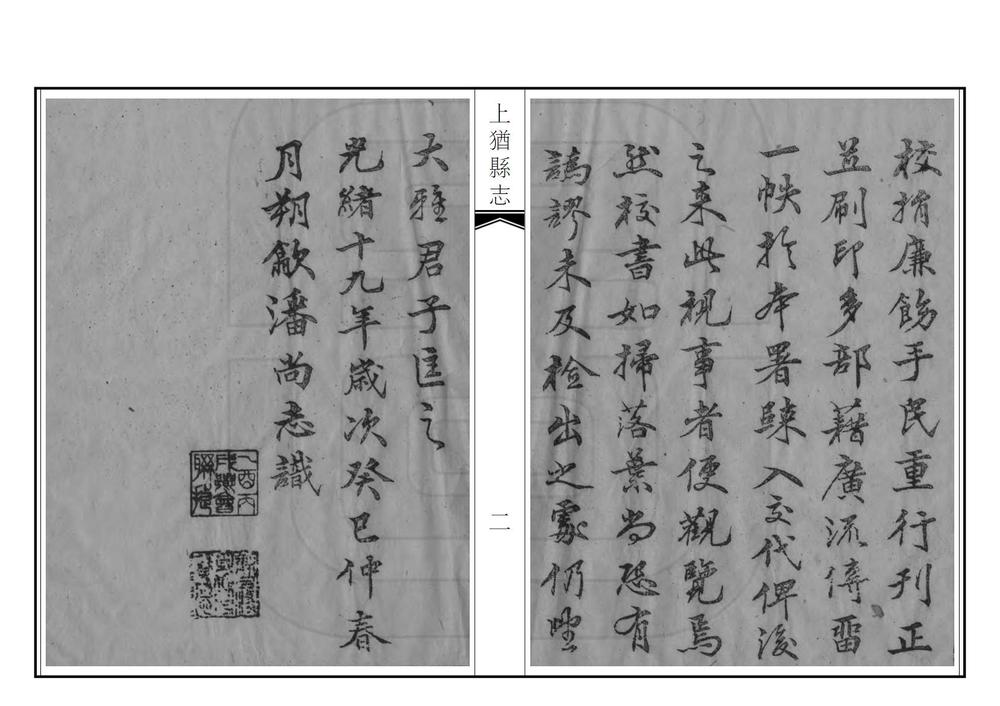 校捐廉飭手民重行刊正
並刷印多部藉廣流傳畱
一帙於本署隸入交代俾後
之來此視事者便觀覽焉
然校書如掃落葉尚恐有
譌謬未及檢出之處仍望
上猶縣志
二
大雅君子匡之
光緒十九年歲次癸巳仲春
月朔歙潘尚志識
乙酉丙
戌鄉會
聯捷